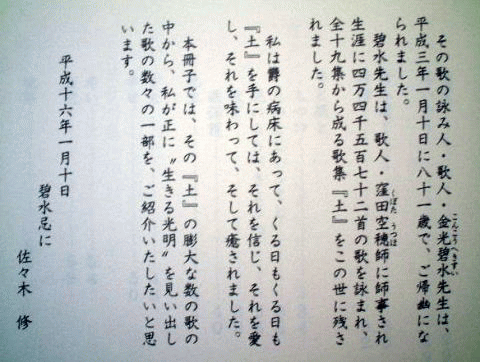 その歌の詠み人・歌人・金光碧水先生は、
平成三年一月十日に八十一歳で、ご帰幽にな
られました。
碧水先生は、歌人・窪田空穂師に師事され
生涯に四万四千五百七十二首の歌を詠まれ、
全十九集から成る歌集『土』をこの世に残さ
れました。
私は欝の病床にあって、くる日もくる日も
『土』を手にしては、それを信じ、それを愛
し、それを味わって、そして癒されました。
本冊子では、その『土』の膨大な数の歌の
中から、私が正に〝生きる光明〟を見い出し
た歌の数々の一部を、ご紹介いたしたいと思
います。
平成十六年一月十日
碧水忌に
佐々木 修